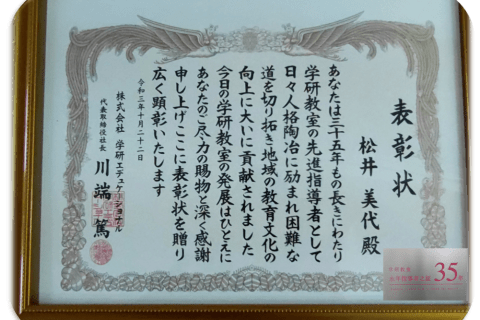 表彰状
松井 美代 殿
あなたは三十五年もの長きにわたり
学研教室の先進指導者として
日々人格陶冶に励まれ困難な
道を切り拓き地域の教育文化の
向上に大いに貢献されました
今日の学研教室の発展はひとえに
あなたのご尽力の賜物と深く感謝
申し上げここに表彰状を贈り
広く顕彰いたします
令和三年十月二十二日
株式会社 学研エデュケーショナル
代表取締役社長 川端 篤
35